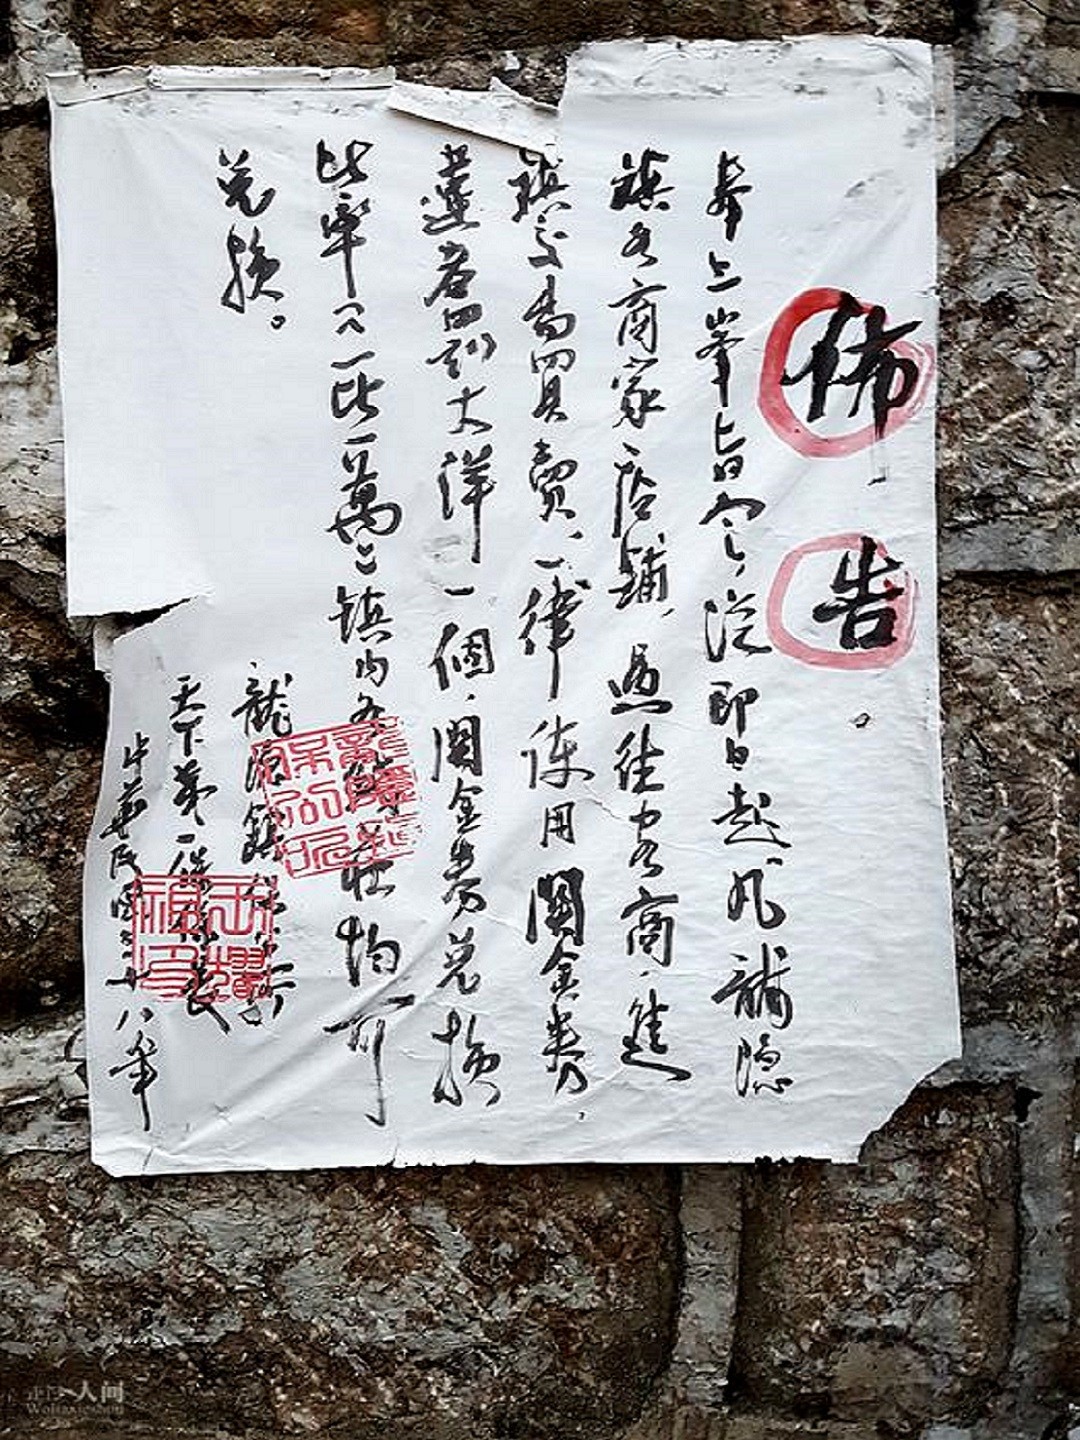 佈告
奉上峯旨令，從即日起，凡龍隐
鎮各商家店舖，過往客商，進
鎮交易買賣，一律使用關金券，
違者四割大洋一個，關金券兌換
比率只一比一萬，鎮内各錢莊均可
兌換。
龍隐鎮
天下第一保保長
中華民國三十八年
人间